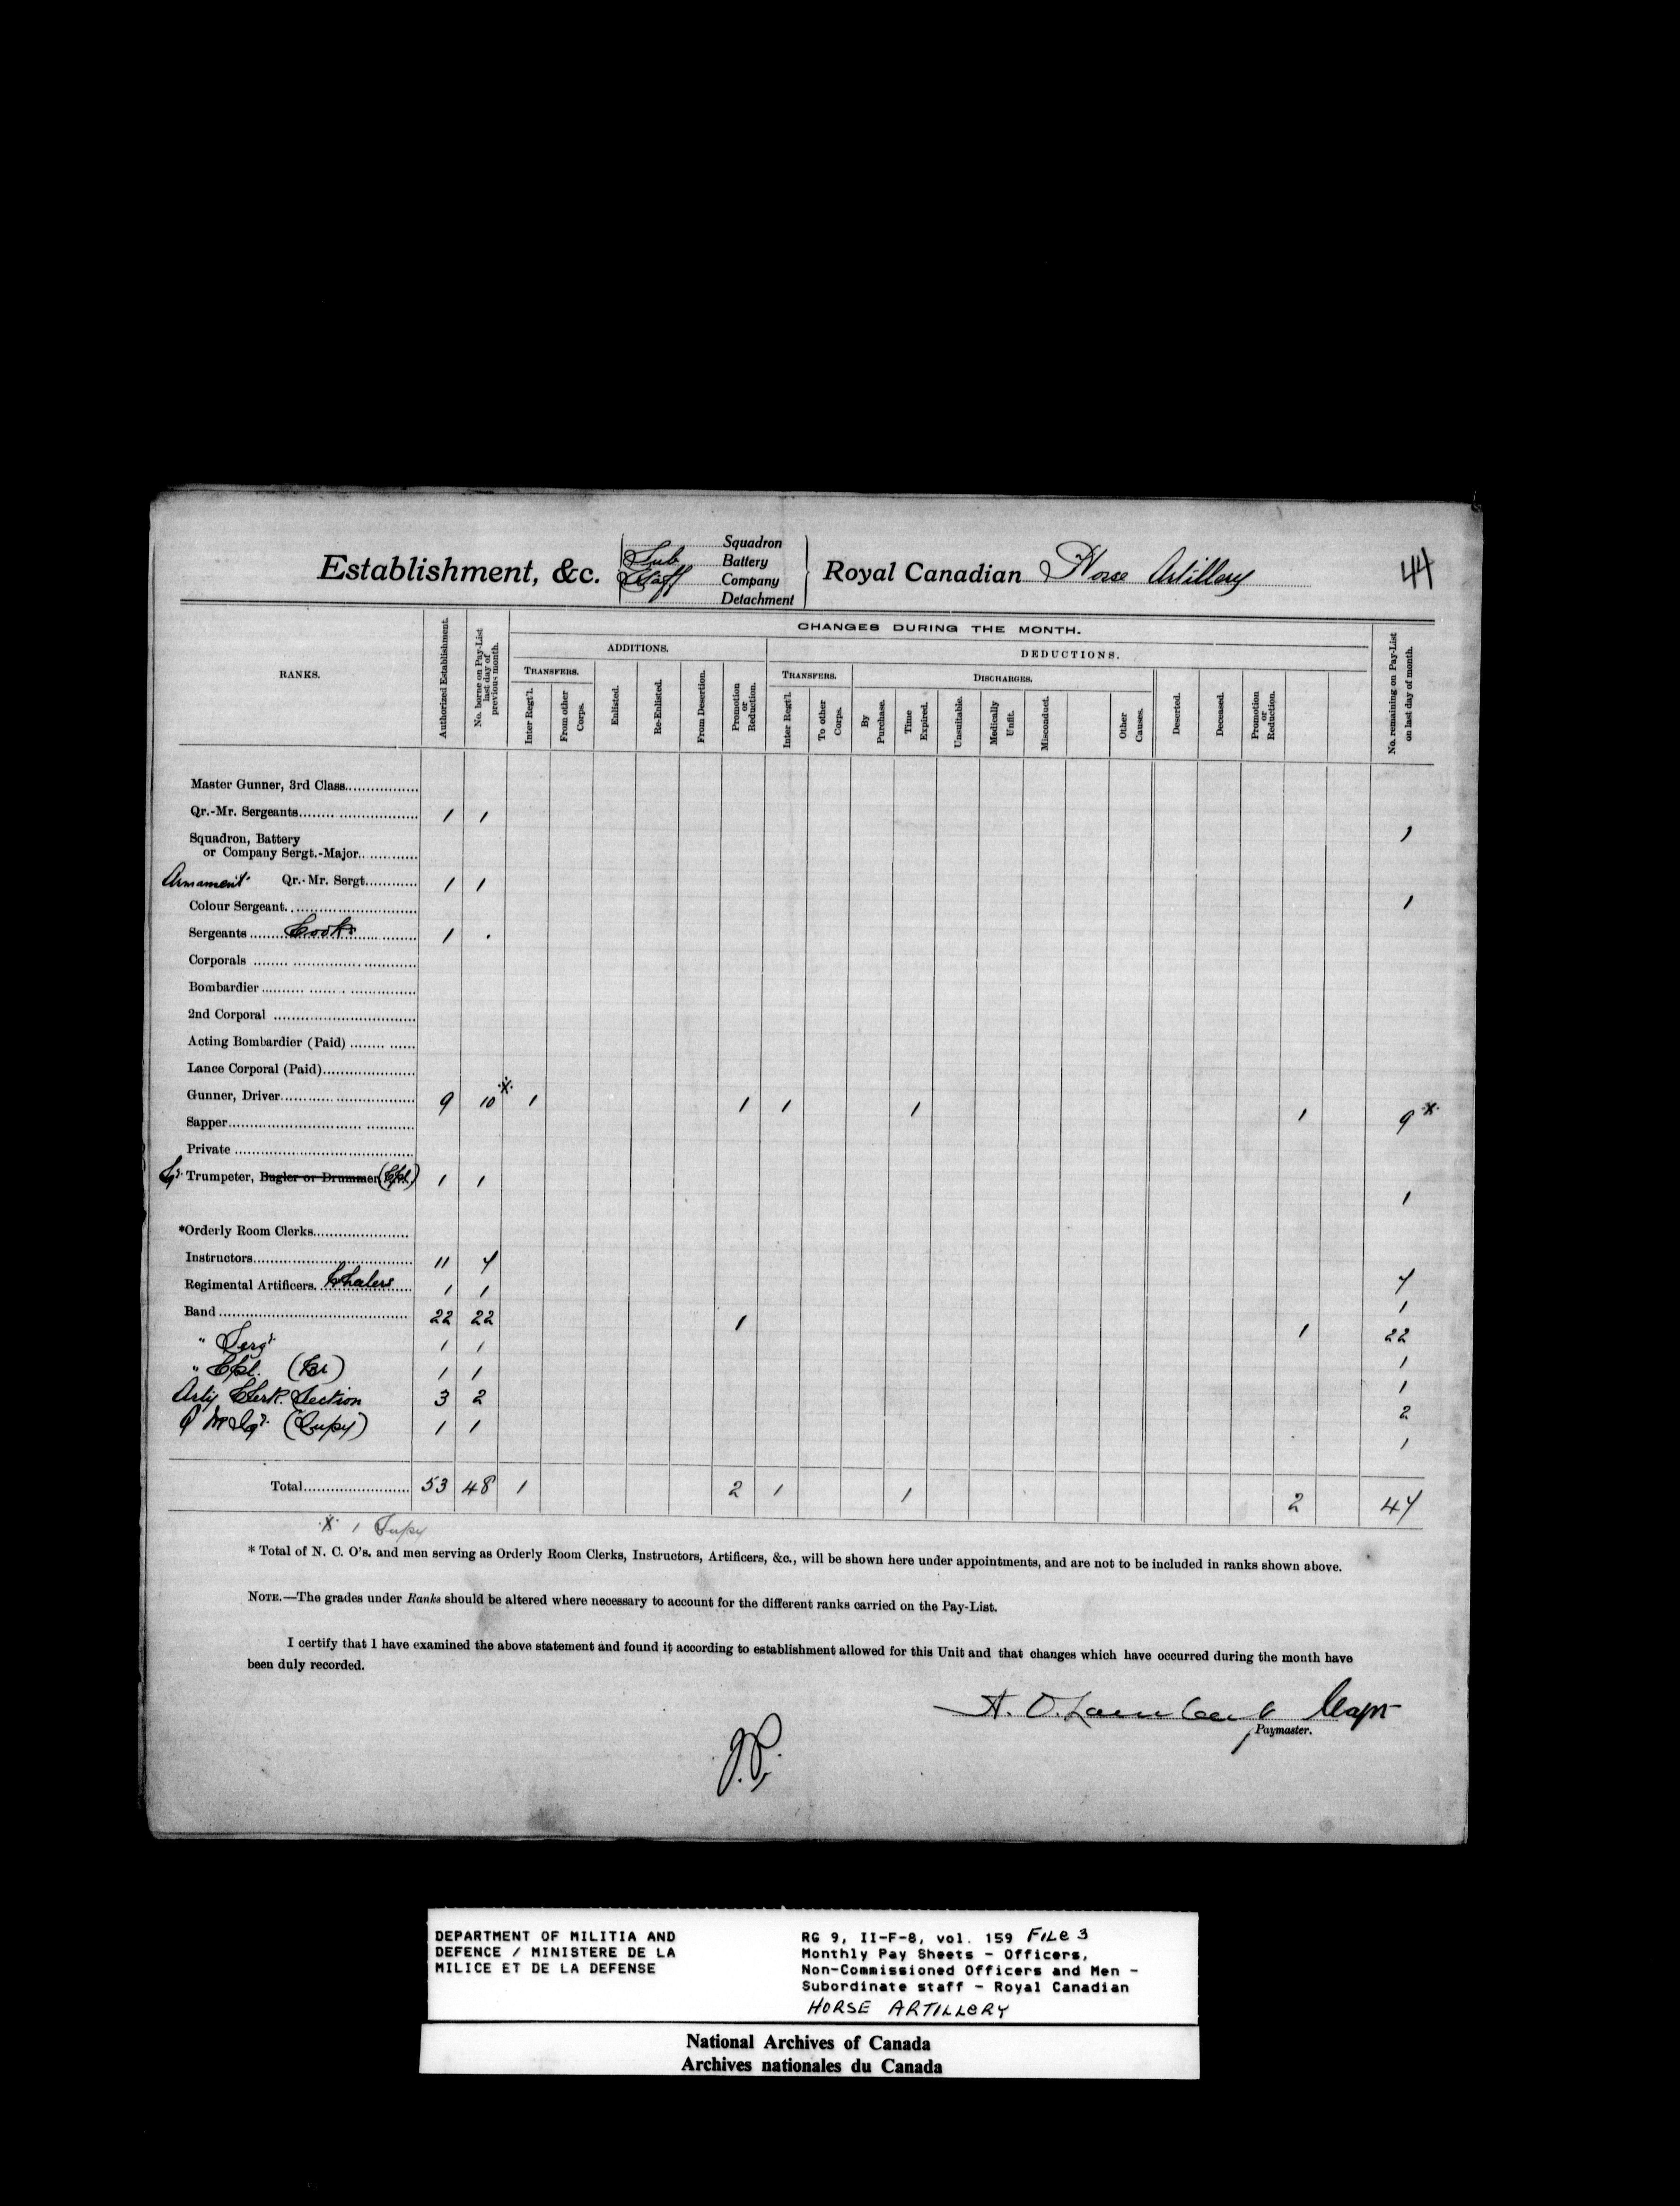 Establishment, &c.
Sub
Staff
Squadron
Battery
Company
Detachment
Royal Canadian Horse Artillery
44
RANKS.
Authorized Establishment.
No. borne on Pay-List last day of previous month.
CHANGES DURING THE MONTH.
ADDITIONS.
DEDUCTIONS.
TRANSFERS.
Inter Regt'l.
From other Corps.
Enlisted.
Re-Enlisted.
From Desertion.
Promotion or Reduction.
TRANSFERS.
Inter Regt'l.
To other Corps.
DISCHARGES.
By Purchase.
Time Expired.
Unsuitable.
Medically Unfit.
Misconduct.
Other Causes.
Deserted.
Deceased.
Promotion or Reduction.
No. remaining on Pay-List on last day of month.
Master Gunner, 3rd Class
Qr.-Mr. Sergeants 1 1 1
Squadron, Battery
or Company Sergt.-Major
Armament Qr.-Mr. Sergt. 1 1 1
Colour Sergeant
Sergeants Cook 1 .
Corporals
Bombardier
2nd Corporal
Acting Bombardier (Paid)
Lance Corporal (Paid)
Gunner, Driver 9 10 x 1 1 1 1 1 9 x
Sapper
Private
Trumpeter, Bugler or Drummer (Cpl) 1 1 1
*Orderly Room Clerks
Instructors 11 7 7
Regimental Artificers. 1 1 1
Band 22 22 1 1 22
" Sergt 1 1 1
" Cpl. 1 1 1
Arty Clerk. Section 3 2 2
Q M Sgt (Supy) 1 1 1
Total 53 48 1 2 1 1 2 47
x 1 Supy
* Total of N. C. O's. and men serving as Orderly Room Clerks, Instructors, Artificers, &c., will be shown here under appointments, and are not to be included in ranks shown above.
NOTE.—The grades under Ranks should be altered where necessary to account for the different ranks carried on the Pay-List.
I certify that I have examined the above statement and found it according to establishment allowed for this Unit and that changes which have occurred during the month have
been duly recorded.
A. O. Lambert Capt
Paymaster.
J.P.
DEPARTMENT OF MILITIA AND
DEFENCE / MINISTERE DE LA
MILICE ET DE LA DEFENSE
RG 9, II-F-8, vol. 159 FILE 3
Monthly Pay Sheets - Officers,
Non-Commissioned Officers and Men -
Subordinate staff - Royal Canadian
HORSE ARTILLERY
National Archives of Canada
Archives nationales du Canada